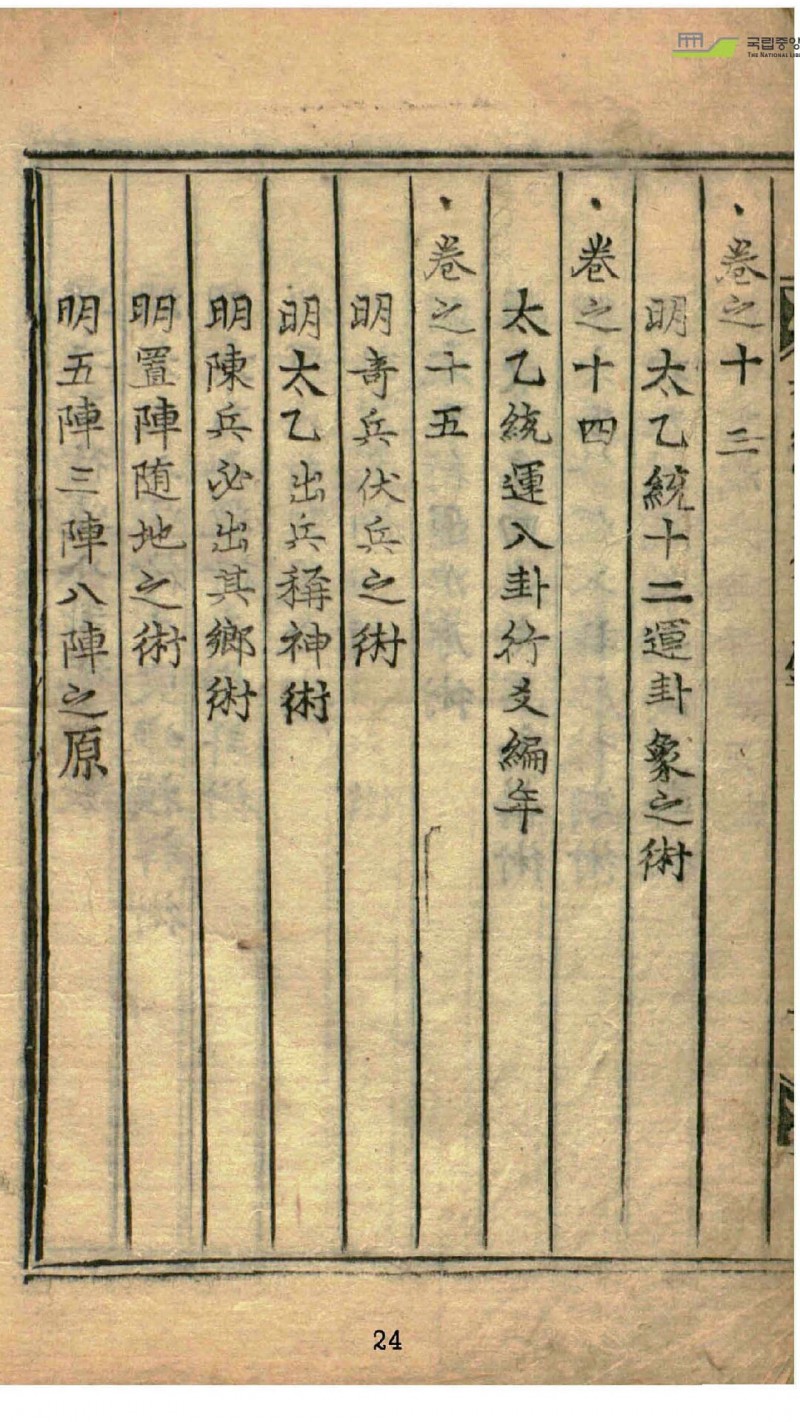 국립중앙
THE NATIONAL LIB
卷之十三
明太乙統十二運卦象之術
卷之十四
太乙統運入卦行爻編年
卷之十五
明奇兵伏兵之術
明太乙出兵稱神術
明陳兵必出其鄉術
明置陣随地之術
明五陣三陣八陣之原
24